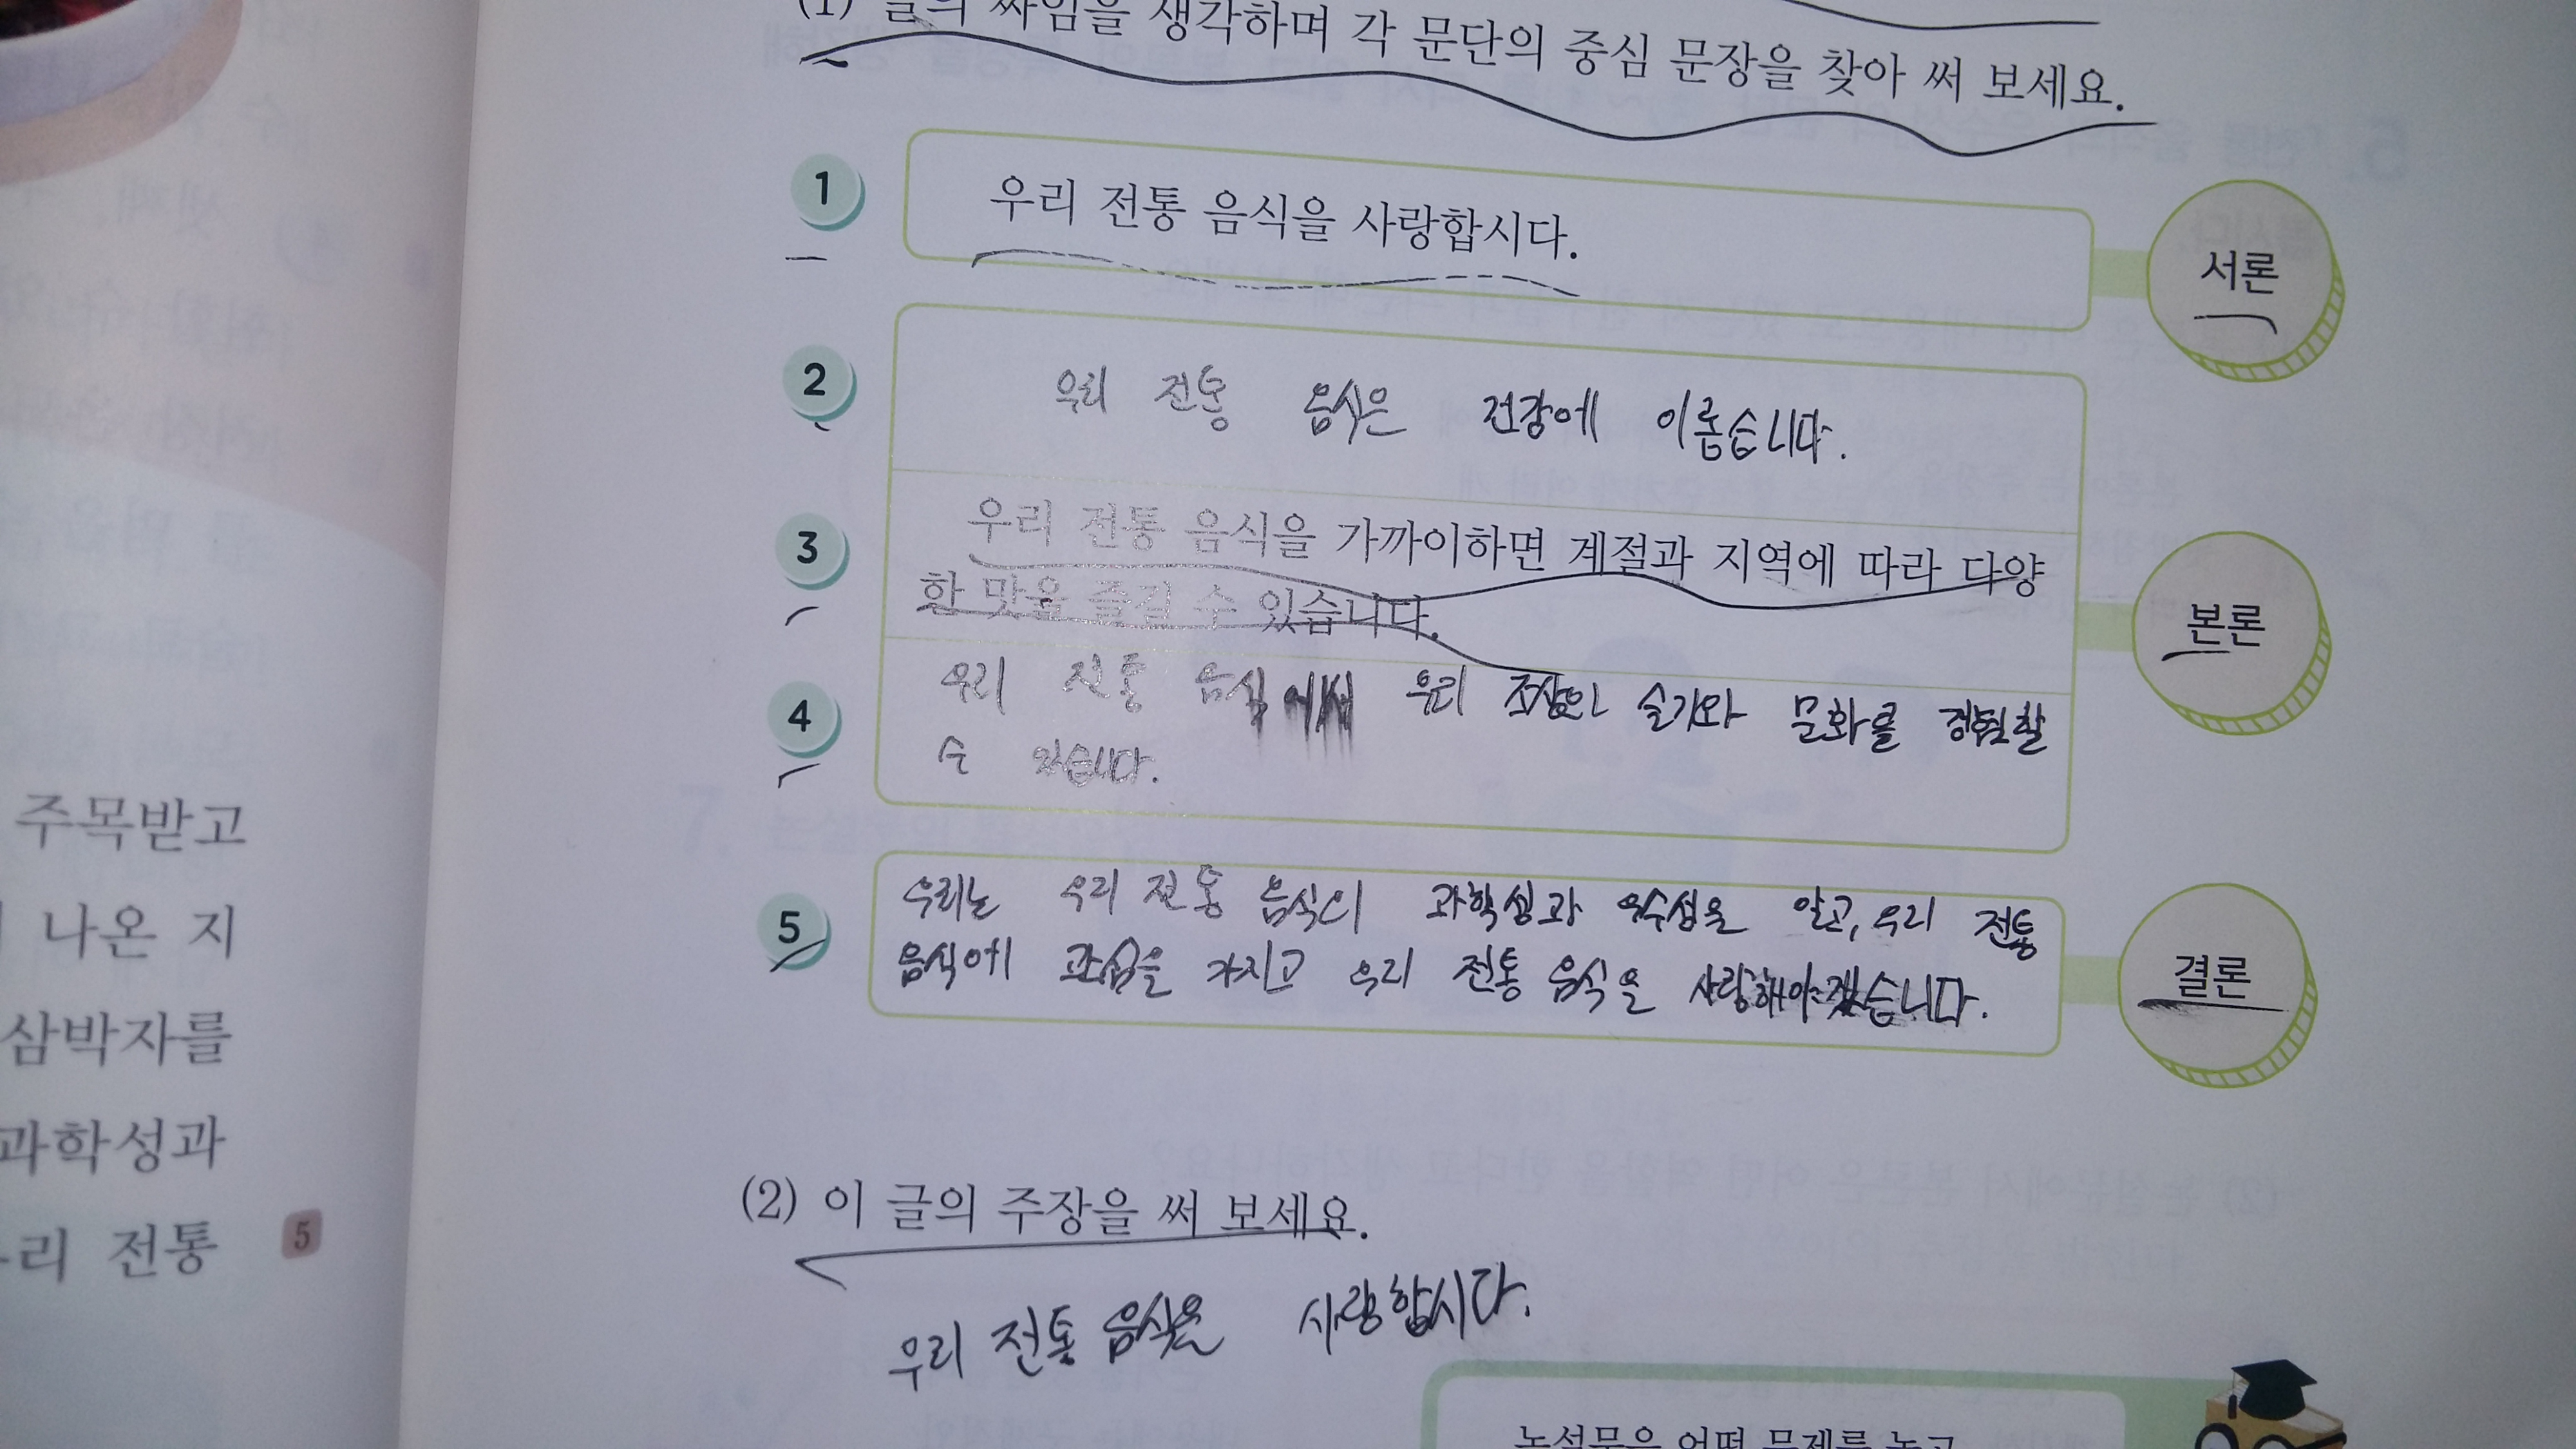 (1) 글의 짜임을 생각하며 각 문단의 중심 문장을 찾아 써 보세요.
1
우리 전통 음식을 사랑합시다.
서론
2
우리 전통 음식은 건강에 이롭습니다.
3
우리 전통 음식을 가까이하면 계절과 지역에 따라 다양
한 맛을 즐길 수 있습니다.
본론
4
우리 전통 음식에서 우리 조상의 슬기와 문화를 경험할
수 있습니다.
5
우리는 우리 전통 음식의 과학성과 우수성을 알고, 우리 전통
음식에 관심을 가지고 우리 전통 음식을 사랑해야겠습니다.
결론
(2) 이 글의 주장을 써 보세요.
우리 전통 음식을 사랑합시다.
논설문은 어떤 문제를 놓고
주목받고
나온 지
삼박자를
과학성과
리 전통
5